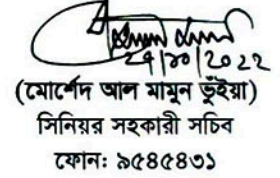 ২৭/১০/২০২২
(মোর্শেদ আল মামুন ভূঁইয়া)
সিনিয়র সহকারী সচিব
ফোন: ৯৫৪৫৪৩১